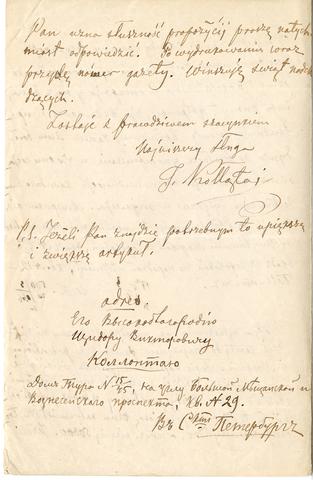 Pan uzna słuszność propozycij proszę natych-
miast odpowiedzić. Po wydrukowaniu zaraz
przyszlę nómer gazety. Winszuję świąt nadcho-
dzących.
Zostaję z prawdziwem szacunkiem
Najniższy sługa
Kołłątaj
P.S. Jeżeli Pan znajdzie potrzebnym to upiększę
i zwiększę artykuł.
adres.
Его Высокоблагородію
Викторовичу
Коллонтаю
Домъ Тура № 15/45, на углу Большой Мѣщанской и
Вознесенского проспекта, кв. № 29.
Въ Сктъ Петербургѣ